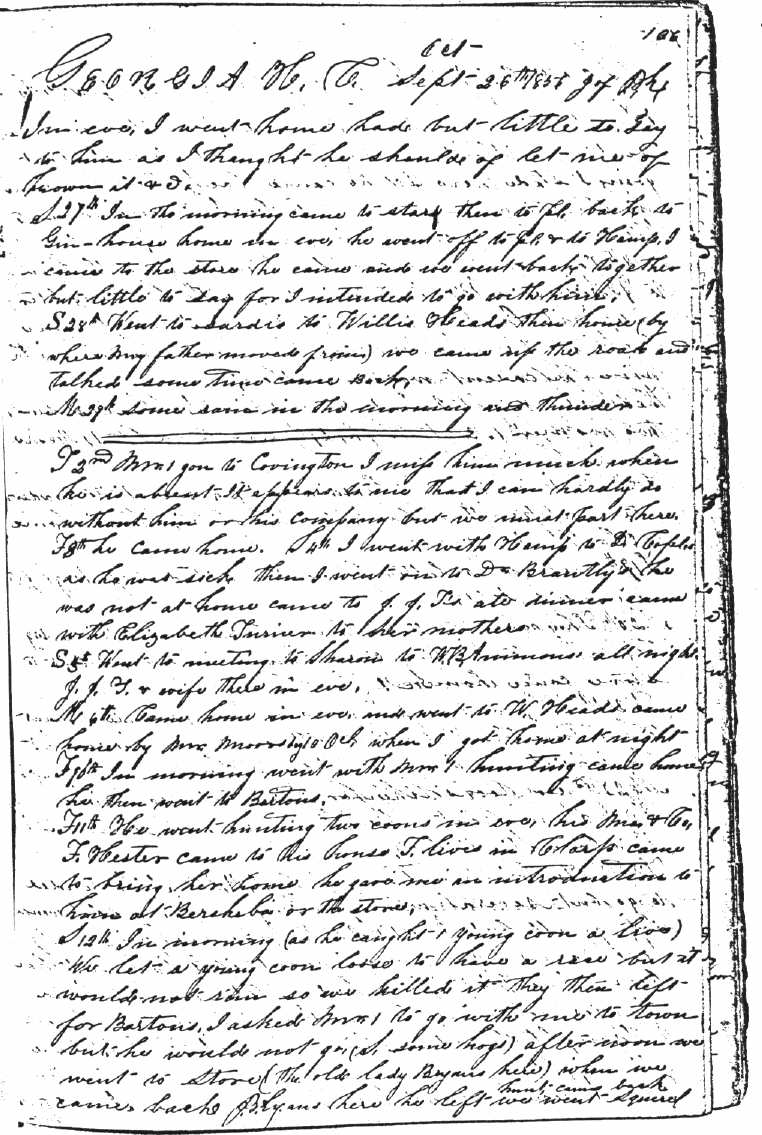 106
Oct
GEORGIA H. C. Sept 26th 1855
In eve, I went home had but little to say
to him as I thought he should of let me of
known it & I.
S 27th In the morning came to store then to back to
Gin-house home in eve, he went off to & to Hamp, I
came to the store he came and we went back together
but little to say for I intended to go with him,
S 28th Went to Sardis to Willis Heads then home (by
where my father moved from) we came up the road and
talked some time came Back,
M 29th some rain in the morning and thunder
T 2nd Mr 1 gon to Covington I miss him much when
he is absent It appears to me that I can hardly do
without him or his company but we must part here.
F 3th he came home. S 4th I went with Hamp to Dr
as he was sick then I went on to Dr Brantly & he
was not at home came to J. J. T.s ate dinner came
with Elizabeth Turner to her mothers
S 5th Went to meeting to Sharon to W. B. Ammons all night
J. J. T. & wife there in eve.
M 6th Came home in eve and went to W. Heads came
home by Mr when I got home at night
F 10th In morning went with Mr 1 hunting came home
he then went to Bartons.
F 11th He went hunting two coons in eve, his &
F. Hester came to his house T. lives in came
to bring her home he gave me an introduction to
him at Bersheba or the store,
S 12th In morning (as he caught 1 young coon a live)
We let a young coon loose to have a race but it
would not run so we killed it they then left
for Bartons, I asked Mr 1 to go with me to town
but he would not go, some hogs) after noon we
went to store (the old lady Bryans here) when we
hunt came back
came back Bryans here he left we went Squirrel